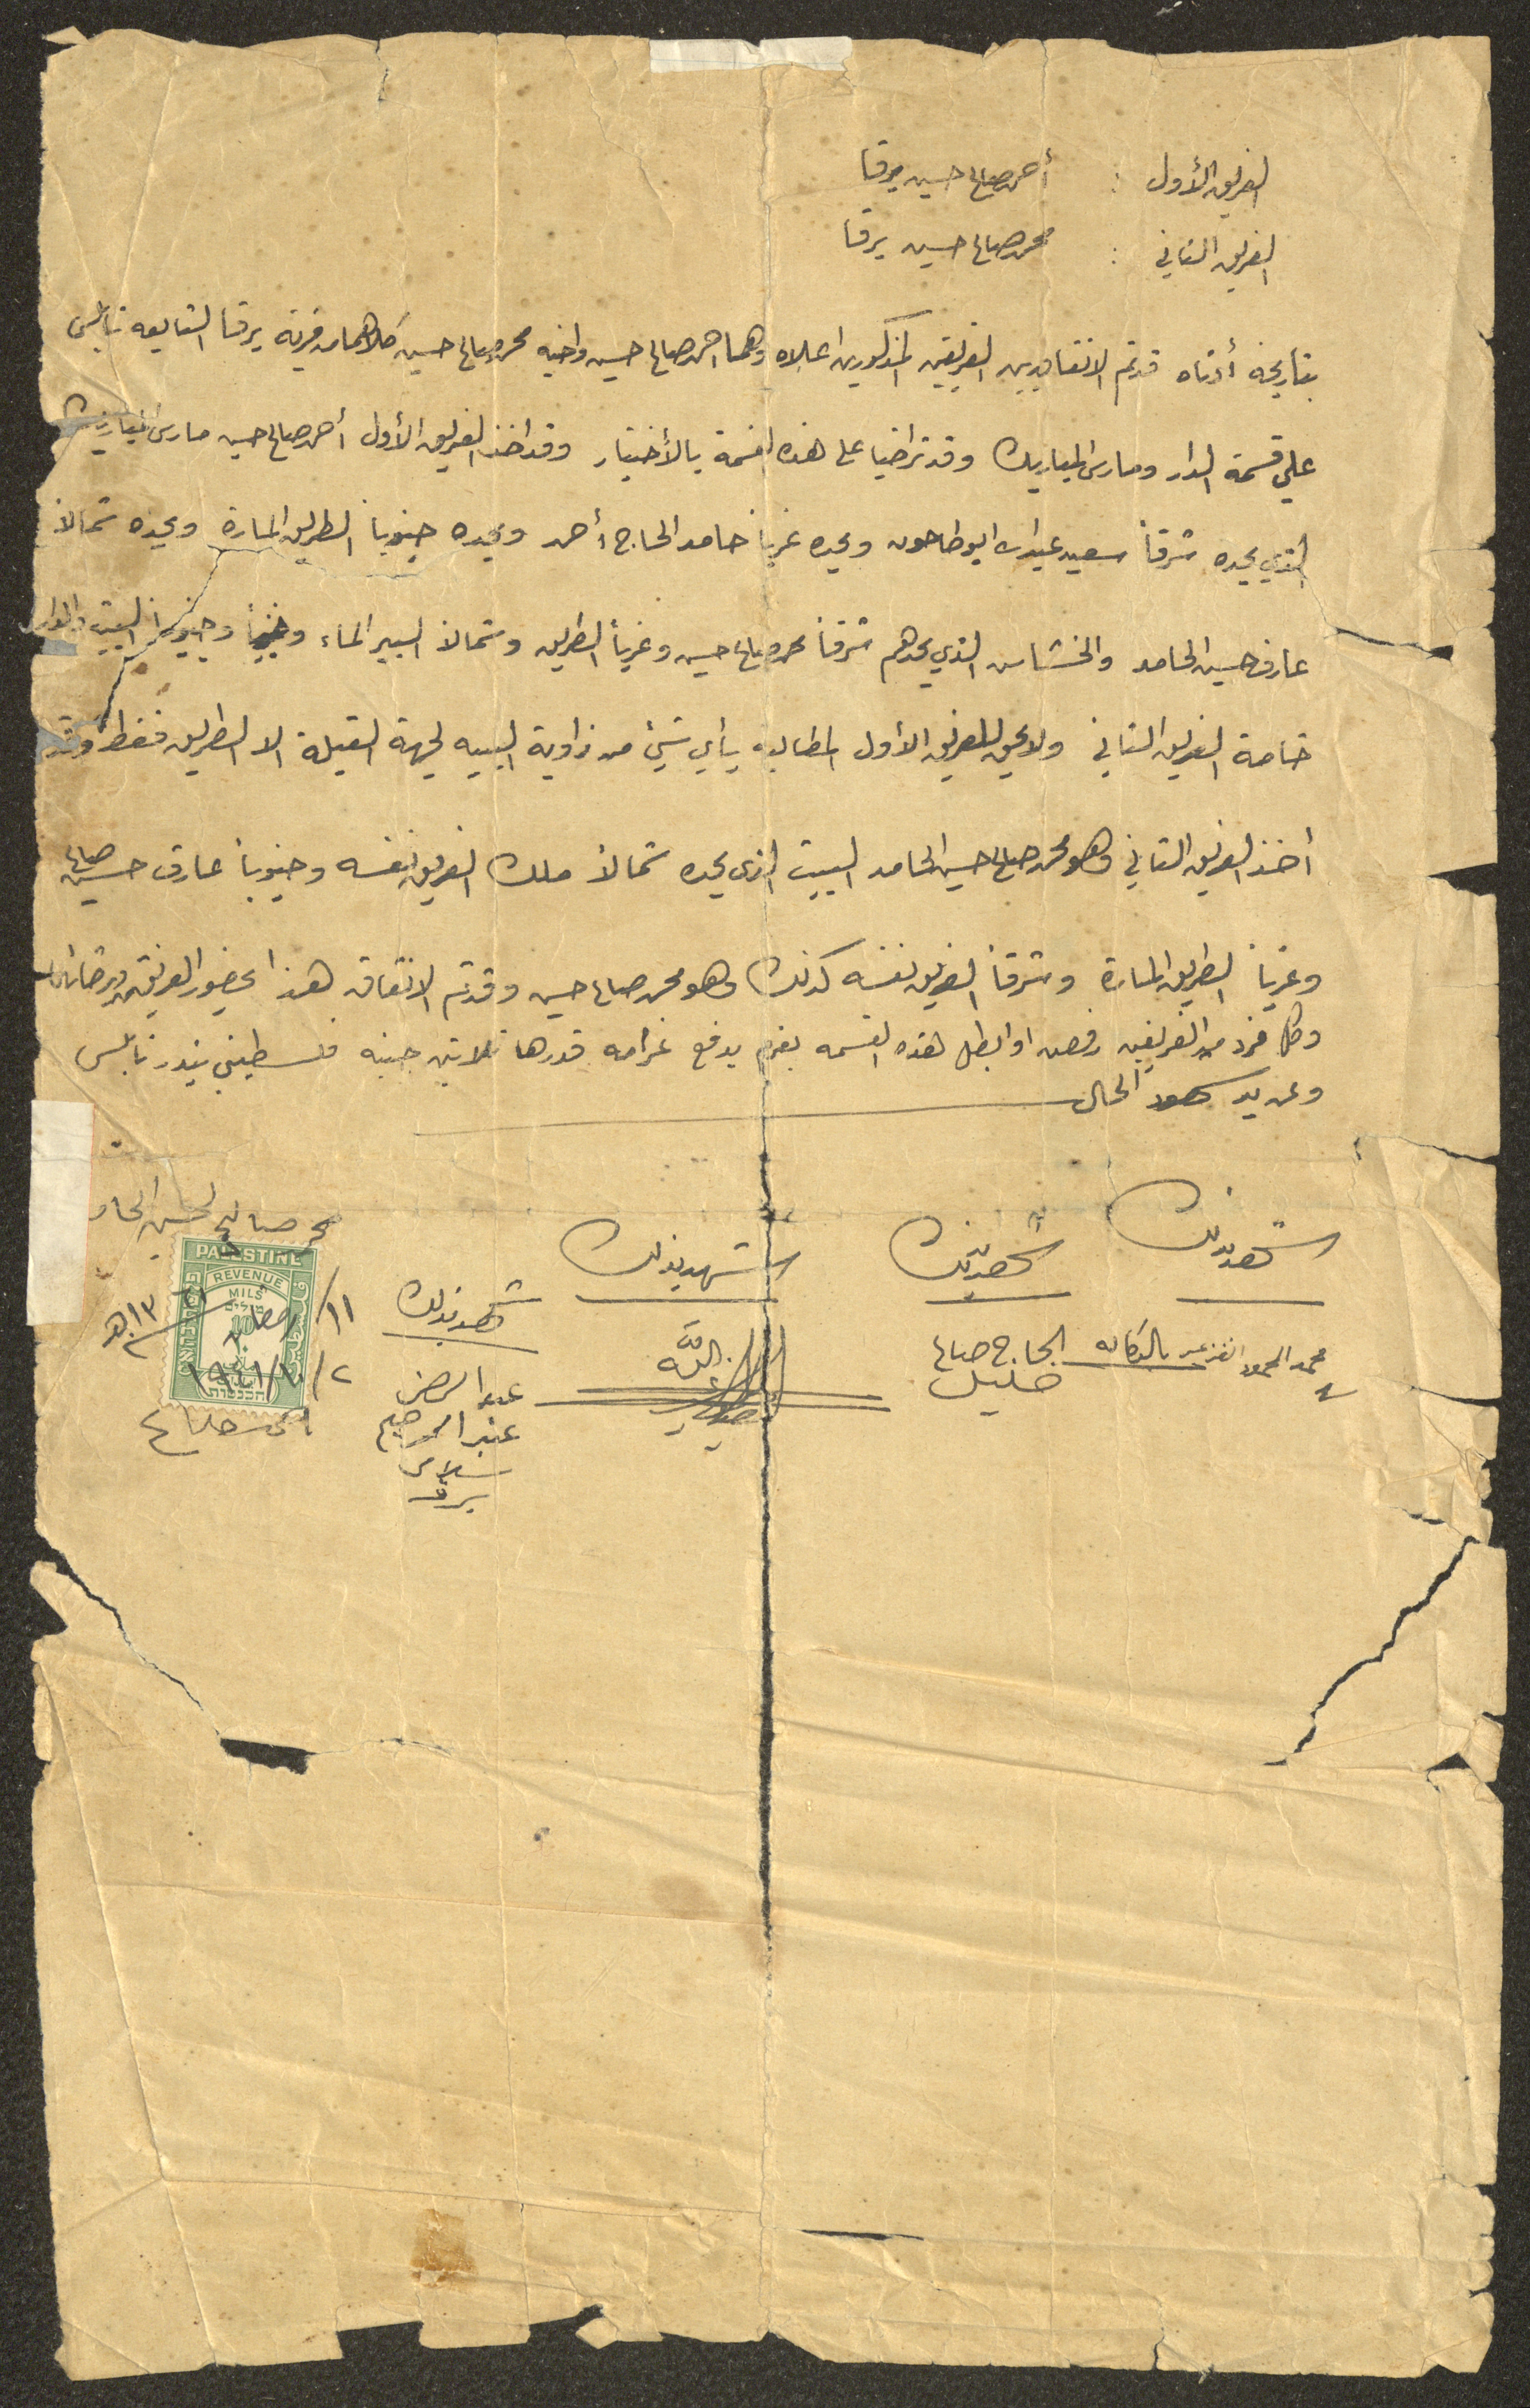 الفريق الأول : أحمد صالح حسين برقا
الفريق الثاني : محمد صالح حسين برقا
بتاريخه أدناه قد تم الاتفاق بين الفريقين المذكورين اعلاه وهما احمد صالح حسين واخيه محمد صالح حسين كلاهما من قرية برقا التابعه نابلس
على قسمة الدار ومارس المباريك وقد تراضيا على هذه القسمة بالأختيار وقد اخذ الفريق الأول أحمد صالح حسين مارس المباريك
الذي يحده شرقاً سعيد عبدالله ابو طاحون ويحده غرباً حامد الحاج أحمد ويحده جنوباً الطريق المارة ويحده شمالاً
عارف حسين الحامد والخشاش الذي يحدهم شرقاً محمد صالح حسين وغرباً الطريق وشمالاً السبير الماء وجنوباً البيت والدار
خاصة الفريق الثاني ولا يحق للفريق الأول المطالبه بأي شيئ من زاوية البيت لجهة القبلة الا الطريق فقط وقد
أخذ الفريق الثاني وهو محمد صالح حسين الحامد البيت الذي يحده شمالاً ملك الفريق نفسه وجنوباً عارف حسين صالح
وغرباً الطريق المارة وشرقاً الفريق نفسه كذلك وهو محمد صالح حسين وقد تم الاتفاق هذا بحضور الفريقين وبرضائهما
وكل فرد من الفريقين رفض او ابطل هذه القسمه يغرم بدفع غرامه قدرها ثلاثين جنيه فلسطيني بندر نابلس
وعن يد شهود الحال
شهد بذلك شهد بذلك شهد بذلك شهد بذلك
محمد المحمود بالوكاله
الحاج صالح خليل
عبد الرحمن عبد الرحيم
برقه
محمد صالح الحسين الحامد
PALESTINE
REVENUE
MILS
10
فلسطين
١١/ رمضان
٢/١٠/١٩٤١
احمد صالح